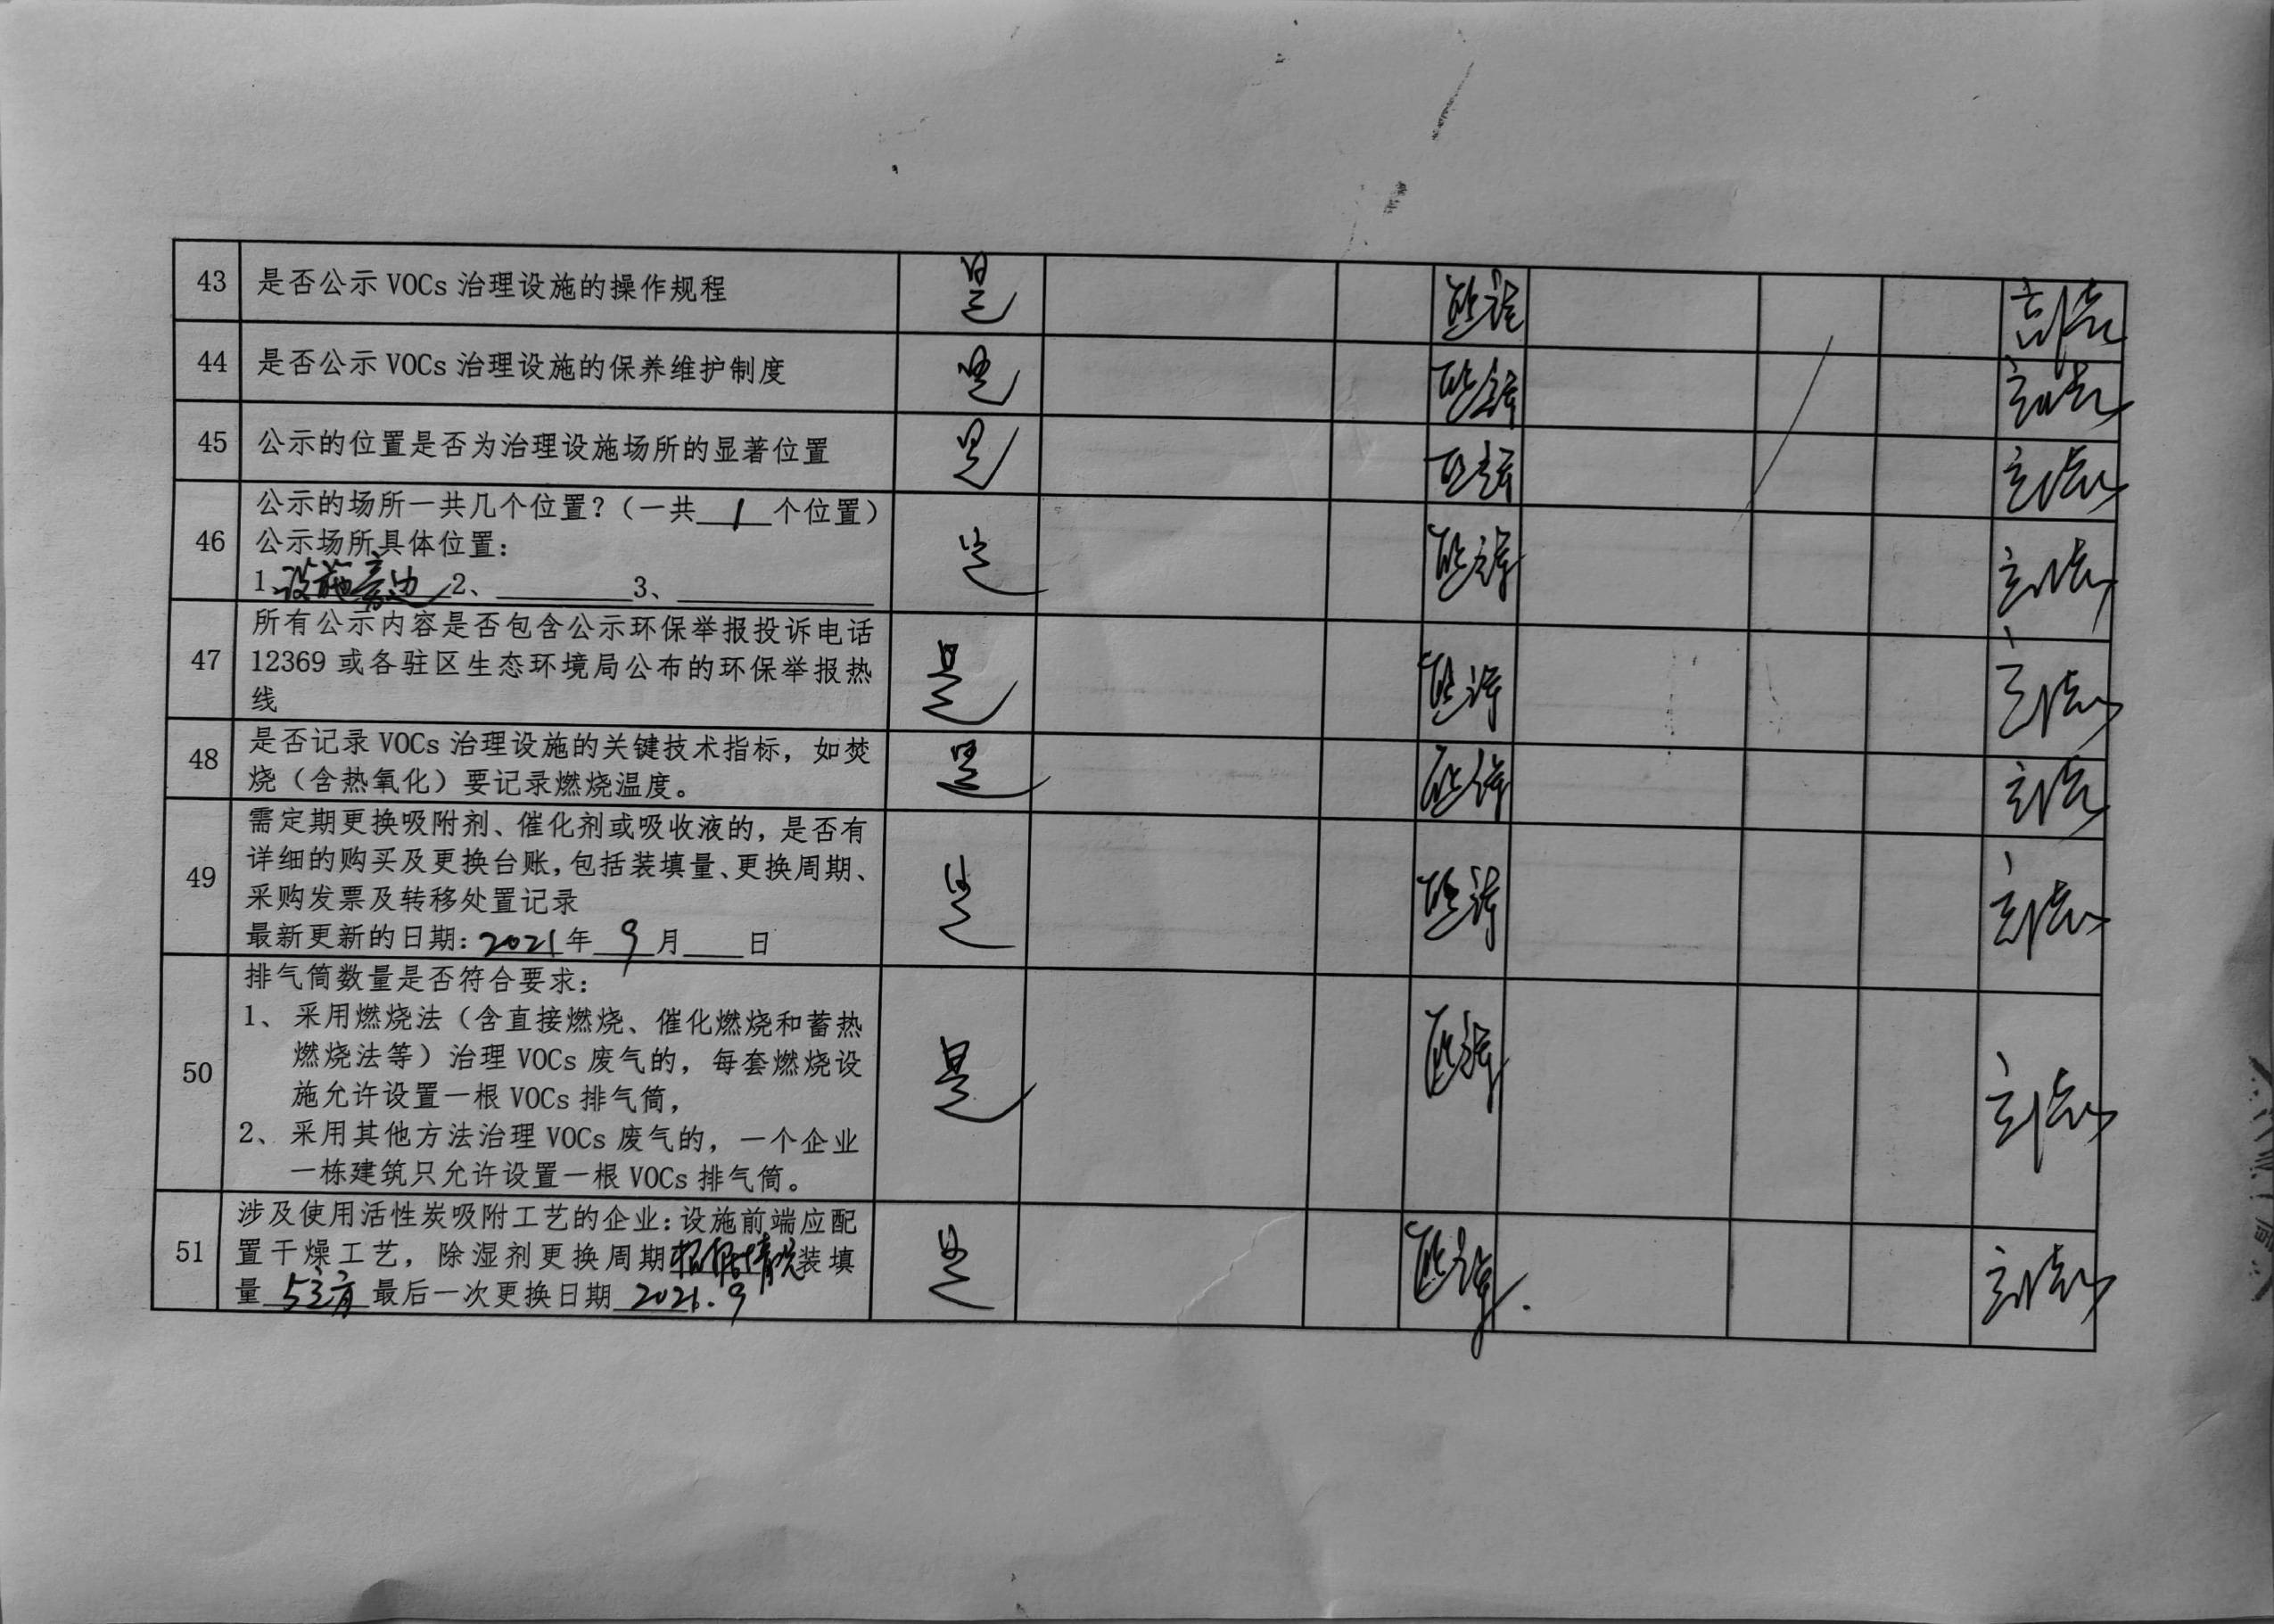 43 是否公示 VOCs 治理设施的操作规程 是
44 是否公示 VOCs 治理设施的保养维护制度 是
45 公示的位置是否为治理设施场所的显著位置 是
46 公示的场所一共几个位置？（一共 1 个位置）
公示场所具体位置：
1、设施旁边 2、 3、
是
47 所有公示内容是否包含公示环保举报投诉电话
12369 或各驻区生态环境局公布的环保举报热
线
是
48 是否记录 VOCs 治理设施的关键技术指标，如焚
烧（含热氧化）要记录燃烧温度。
是
49 需定期更换吸附剂、催化剂或吸收液的，是否有
详细的购买及更换台账，包括装填量、更换周期、
采购发票及转移处置记录
最新更新的日期：2021年 9 月 日
是
50 排气筒数量是否符合要求：
1、采用燃烧法（含直接燃烧、催化燃烧和蓄热
燃烧法等）治理 VOCs 废气的，每套燃烧设
施允许设置一根 VOCs 排气筒，
2、采用其他方法治理 VOCs 废气的，一个企业
一栋建筑只允许设置一根 VOCs 排气筒。
是
51 涉及使用活性炭吸附工艺的企业：设施前端应配
置干燥工艺，除湿剂更换周期 装填
量 5立方 最后一次更换日期 2021.9
是